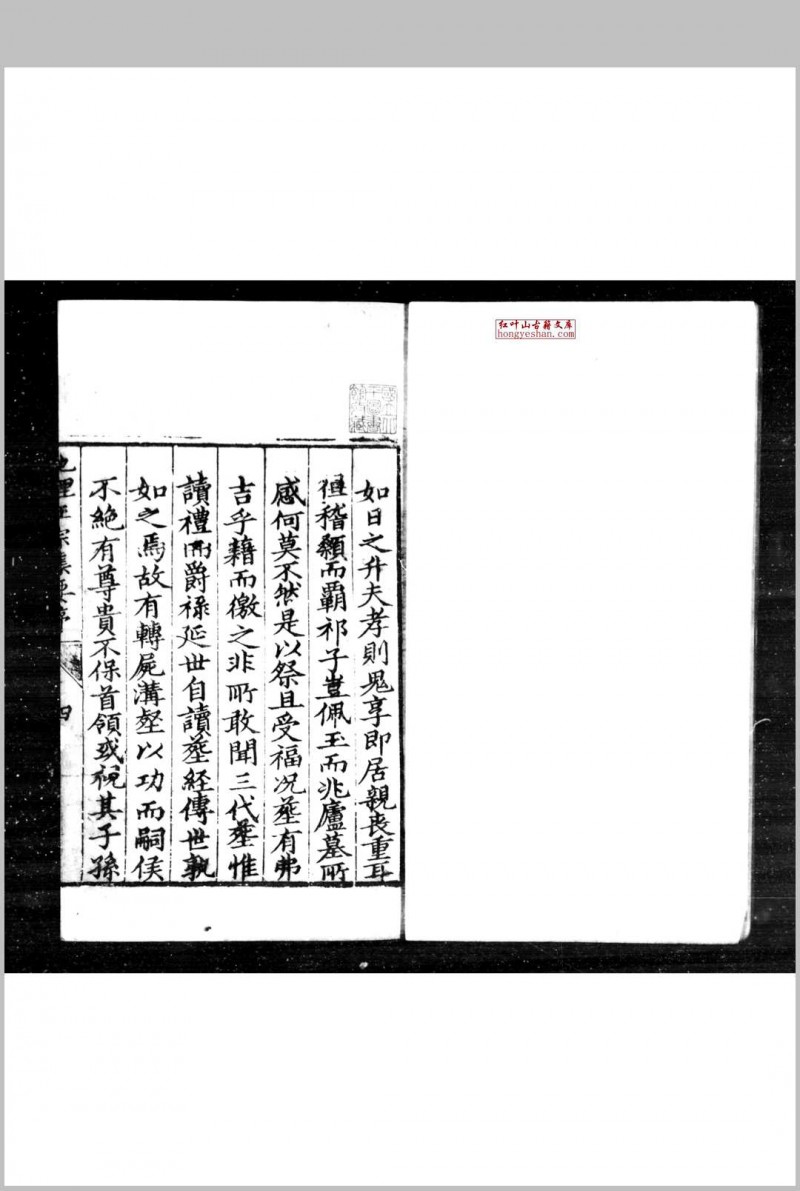 红叶山古籍文库
hongyeshan.com
如日之升夫孝則鬼享即居親喪重耳
稽顙而霸祁子豈佩玉而兆廬墓所
感何莫不然是以祭且受福况塟有弗
吉乎藉而徼之非所敢聞三代塟惟
讀禮而爵祿延世自讀塟經傳世孰
如之焉故有轉屍溝壑以功而嗣侯
不絶有尊貴不保首領或祝其子孫
地理正宗集要序
四